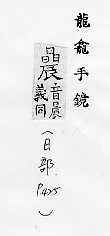 龍龕手鏡
曟音晨義同
(日部. P.425)